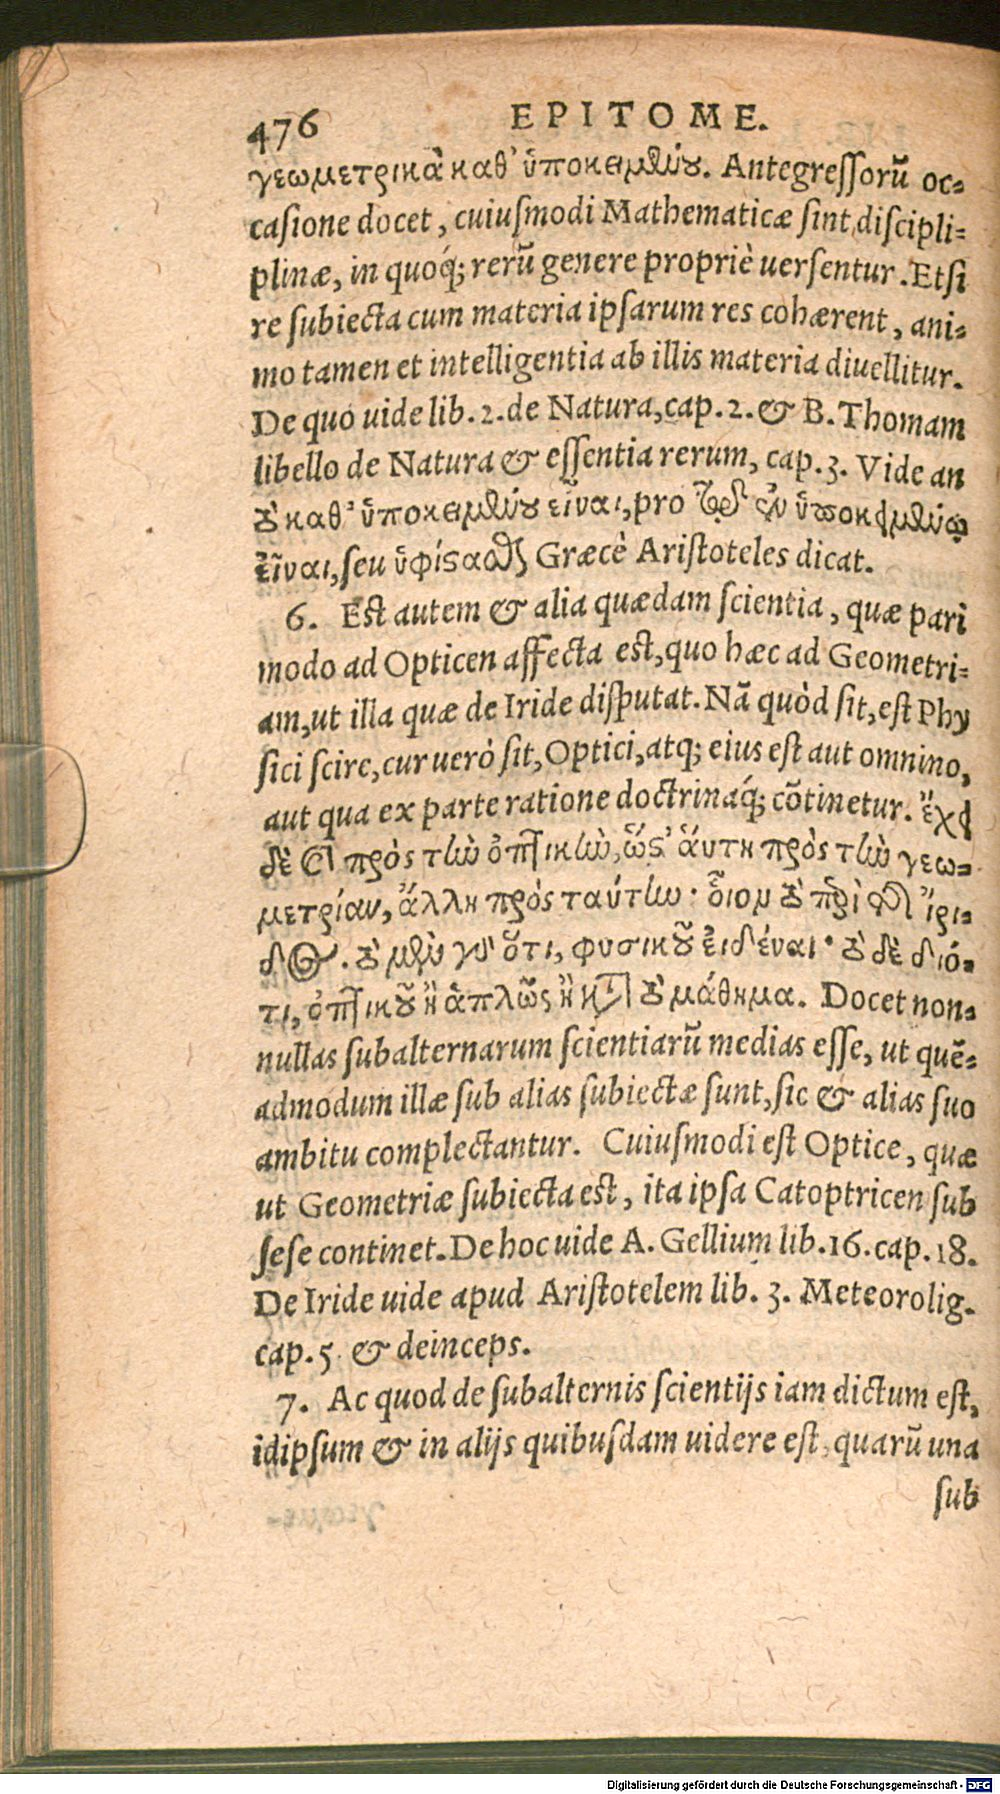 476 EPITOME.
γεωμετρικὰ καθ' ὑποκειμένου. Antegreſſorũ oc-
caſione docet, cuiuſmodi Mathematicæ ſint diſcipli-
plinæ, in quoq́; rerũ genere propriè uerſentur. Etſi
re ſubiecta cum materia ipſarum res cohærent, ani-
mo tamen et intelligentia ab illis materia diuellitur.
De quo uide lib. 2. de Natura, cap. 2. & B. Thomam
libello de Natura & eſſentia rerum, cap. 3. Vide an
οὐ καθ' ὑποκειμένου εἶναι, pro ἐν ὑποκειμένῳ
εἶναι, ſeu ὑφίσασθαι Græcè Ariſtoteles dicat.
6. Eſt autem & alia quædam ſcientia, quæ pari
modo ad Opticen affecta eſt, quo hæc ad Geometri-
am, ut illa quæ de Iride diſputat. Nã quòd ſit, eſt Phy
ſici ſcire, cur uerò ſit, Optici, atq; eius eſt aut omnino,
aut qua ex parte ratione doctrinaq́; cõtinetur. ἔχει
δὲ καὶ πρὸς τὴν ὀπτικὴν, ὡς ἅυτη πρὸς τὴν γεω-
μετρίαν, ἄλλη πρὸς ταύτην· ὅιον τὸ περὶ τῆς ἴρι-
δος. τὸ μὲν γὰρ ὅτι, φυσικοῦ εἰδέναι· τὸ δὲ διό-
τι, ὀπτικοῦ ἢ ἁπλῶς ἢ κατὰ τὸ μάθημα. Docet non-
nullas ſubalternarum ſcientiarũ medias eſſe, ut quẽ-
admodum illæ ſub alias ſubiectæ ſunt, ſic & alias ſuo
ambitu complectantur. Cuiuſmodi eſt Optice, quæ
ut Geometriæ ſubiecta eſt, ita ipſa Catoptricen ſub
ſeſe continet. De hoc uide A. Gellium lib. 16. cap. 18.
De Iride uide apud Ariſtotelem lib. 3. Meteorolig.
cap. 5 & deinceps.
7. Ac quod de ſubalternis ſcientijs iam dictum eſt,
idipſum & in alijs quibuſdam uidere eſt, quarũ una
ſub
Digitalisierung gefördert durch die Deutsche Forschungsgemeinschaft - DFG